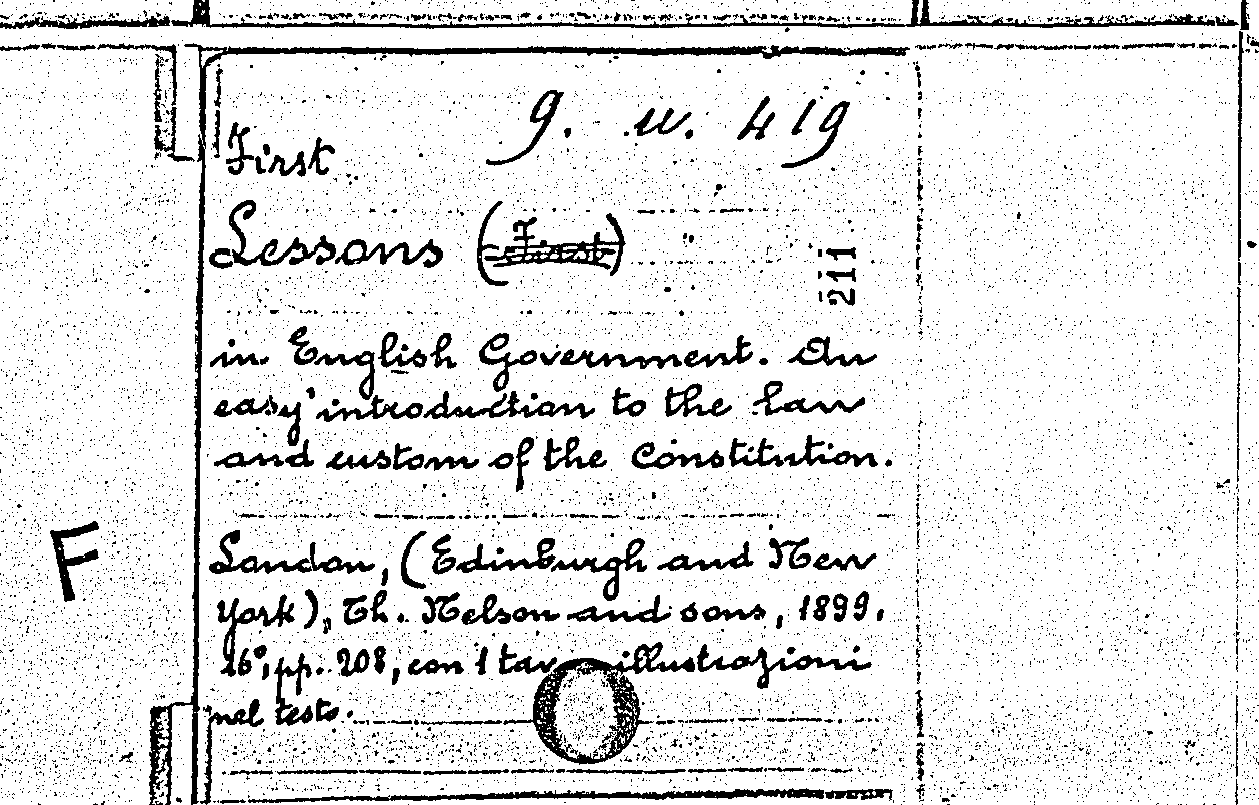 9. u. 419
First
Lessons (First)
211
in English Government. An
easy introduction to the law
and custom of the Constitution.
F
London, (Edinburgh and New
York), Th. Nelson and sons, 1899.
16°, pp. 208, con 1 tav. illustrazioni
nel testo.